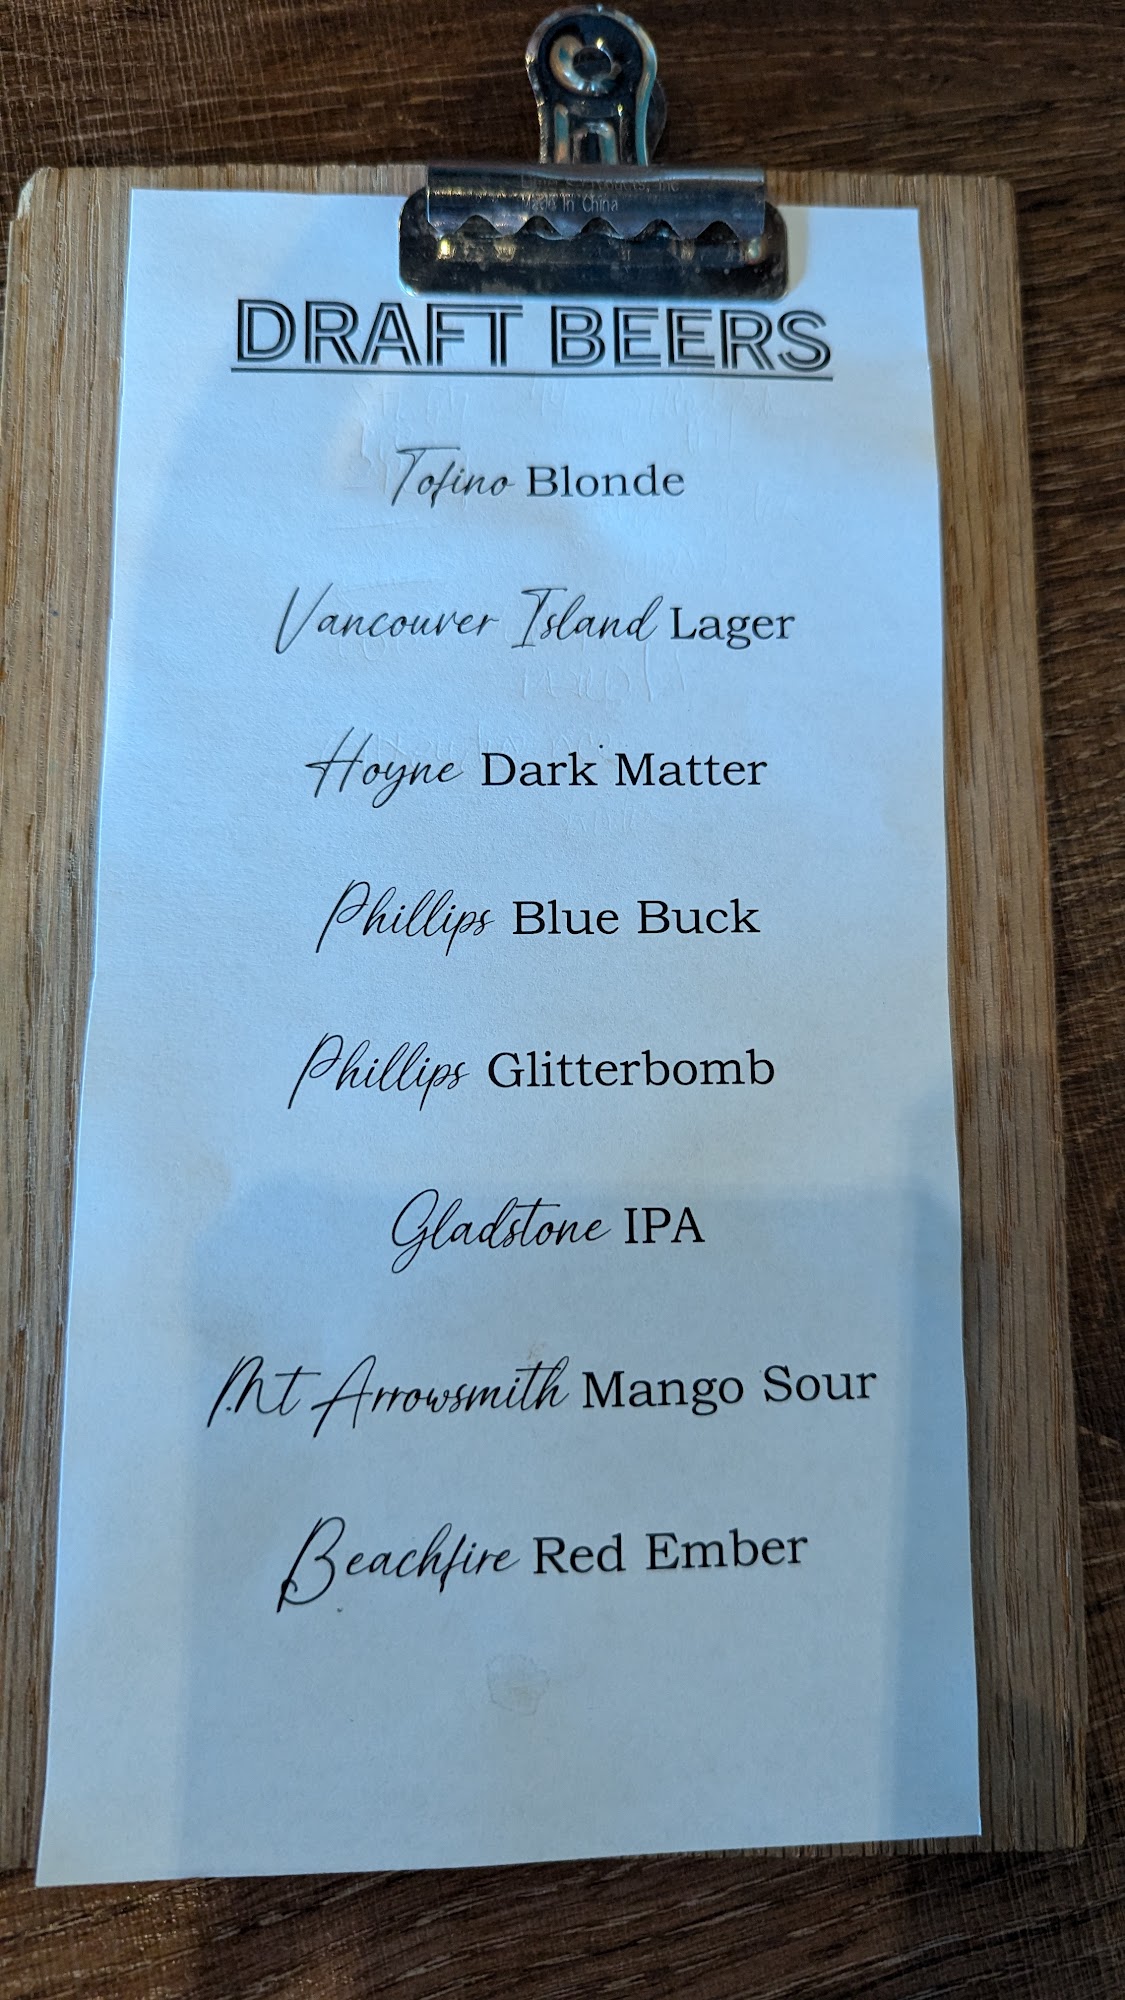 Made in China
DRAFT BEERS
Tofino Blonde
Vancouver Island Lager
Hoyne Dark Matter
Phillips Blue Buck
Phillips Glitterbomb
Gladstone IPA
Mt Arrowsmith Mango Sour
Beachfire Red Ember